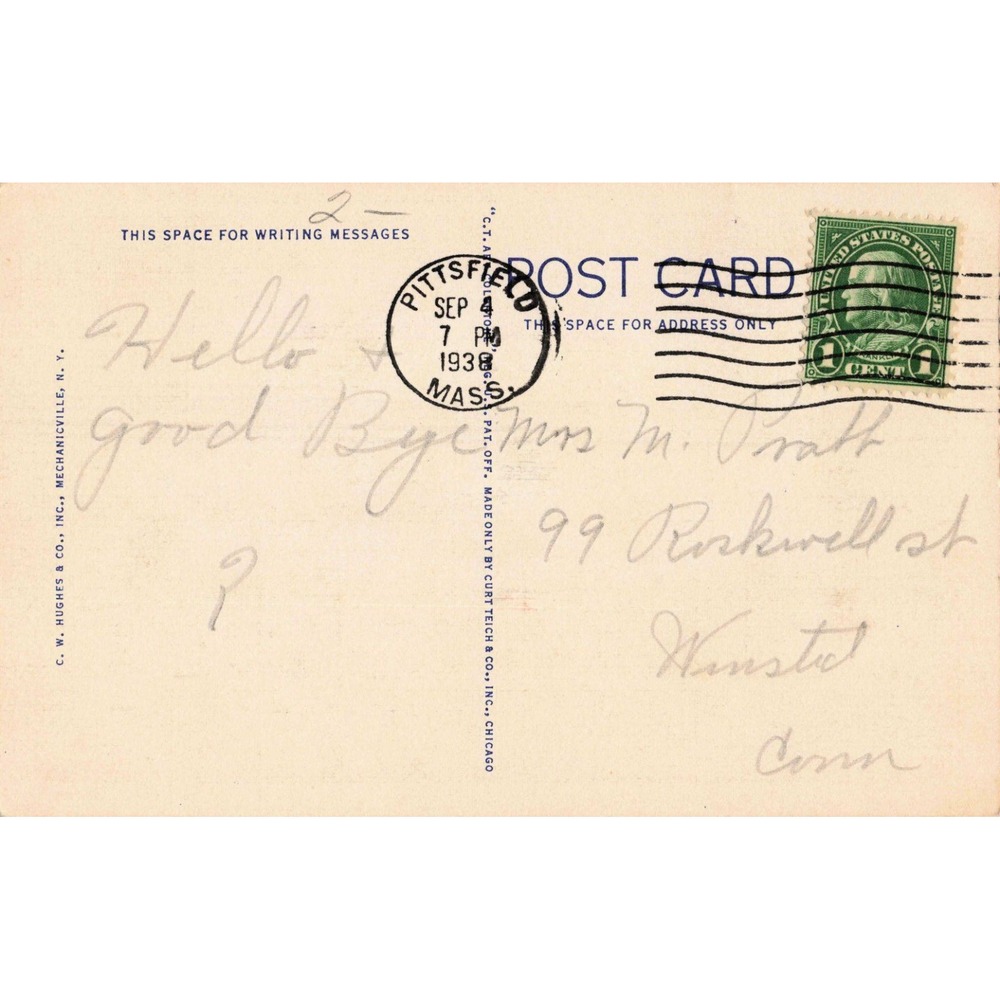 2 —
THIS SPACE FOR WRITING MESSAGES
Hello +
Good Bye
?
C. W. HUGHES & CO., INC., MECHANICVILLE, N. Y.
"C.T. ART COLORTONE" REG. U.S. PAT. OFF. MADE ONLY BY CURT TEICH & CO., INC., CHICAGO
PITTSFIELD
SEP 4
7 PM
1938
MASS.
POST CARD
THIS SPACE FOR ADDRESS ONLY
UNITED STATES POSTAGE
FRANKLIN
1 CENT 1
Mrs M. Pratt
99 Rockwell st
Winsted
Conn